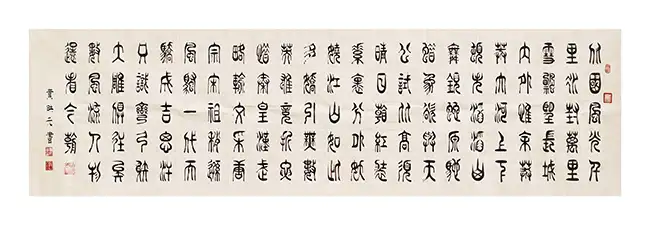 北國風光千
里冰封萬里
雪飄望長城
內外惟余莽
莽大河上下
頓失滔滔山
舞銀蛇原馳
蠟象欲與天
公試比高須
晴日看紅裝
素裹分外妖
嬈江山如此
多嬌引無數
英雄競折腰
惜秦皇漢武
略輸文采唐
宗宋祖稍遜
風騷一代天
驕成吉思汗
只識彎弓射
大雕俱往矣
數風流人物
還看今朝